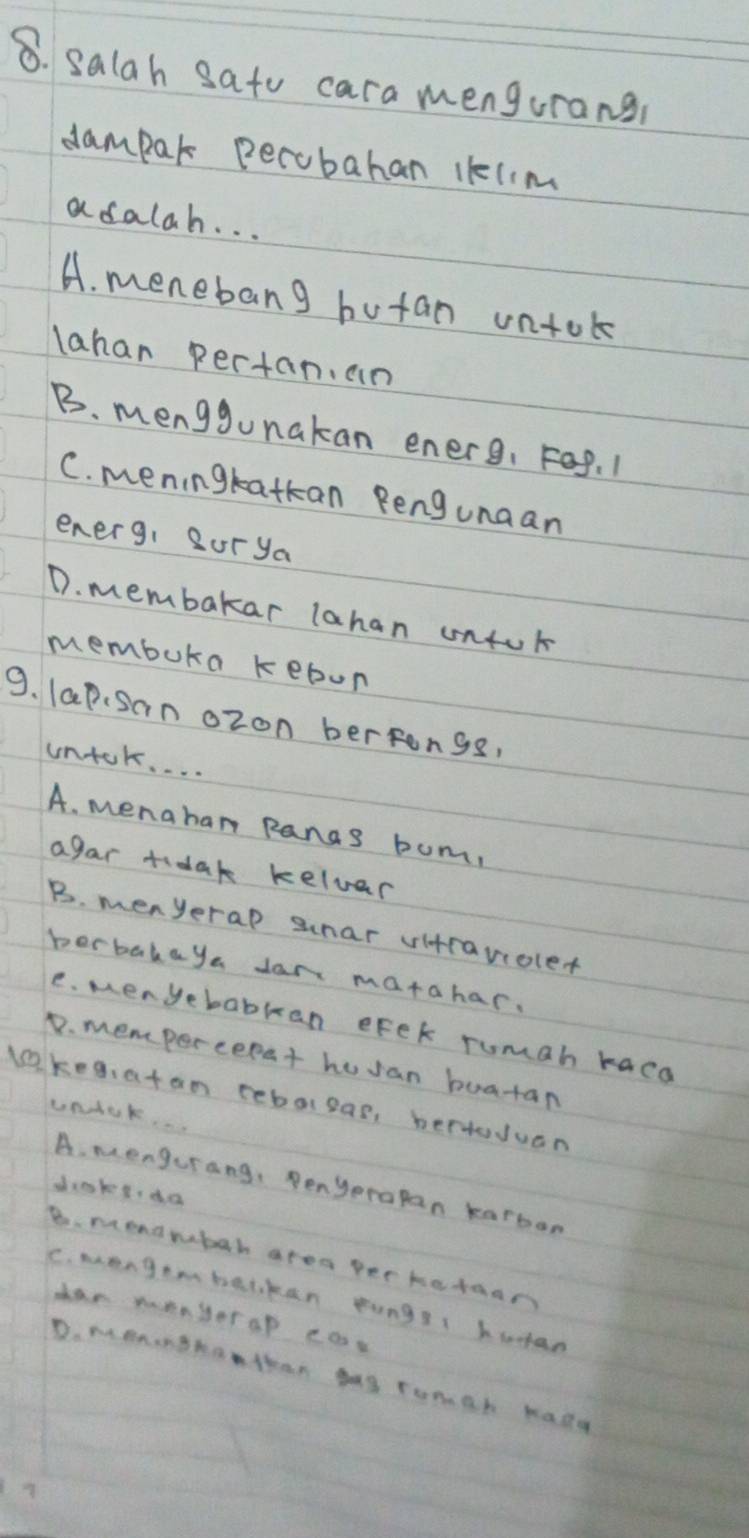 8. salah satu cara mengurangi
dampak perubahan iklim
adalah...
A. menebang hutan untuk
lahan pertanian
B. menggunakan energi Fosil
C. meningkatkan Pengunaan
energi surya
D. membakar lahan untuk
membuka kebun
9. lapisan ozon berfungsi
untuk....
A. menahan panas bumi
agar tidak keluar
B. menyerap sinar ultraviolet
berbahaya dari matahari
C. menyebabkan efek rumah kaca
D. mempercepat hujan buatan
10 kegiatan reboisasi bertujuan
untuk...
A. mengurangi penyerapan karbon
dioksida
B. menambah area perkotaan
C. mengembalikan fungsi hutan
dan menyerap co2
D. gas rumah kaca